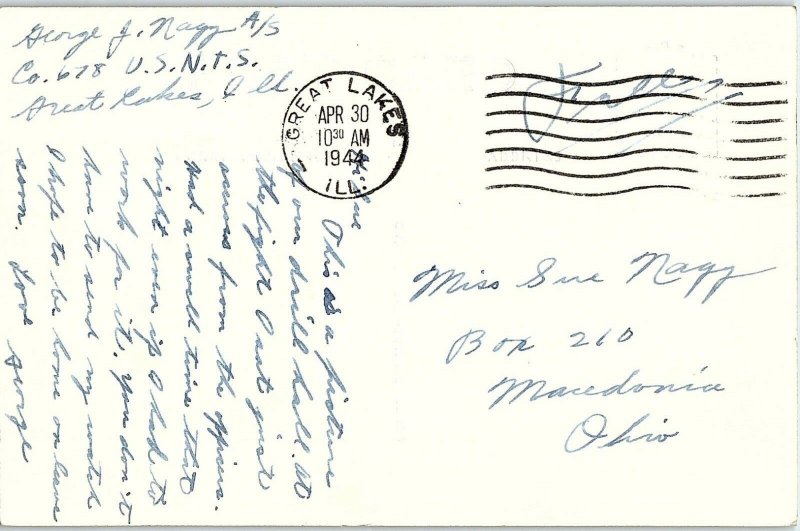 George J. Nagy A/S
Co. 678 U.S.N.T.S.
Great Lakes, Ill.
GREAT LAKES
APR 30
10 30 AM
1944
ILL.
Free
Miss Sue Nagy
Box 210
Macedonia
Ohio
Hi Sue
This is a picture
of our drill hall. At
the fight I sat just
across from the officers.
Had a swell time that
night even if I had to
work for it. You don't
have to send my watch
I hope to be home on leave
soon. Love George